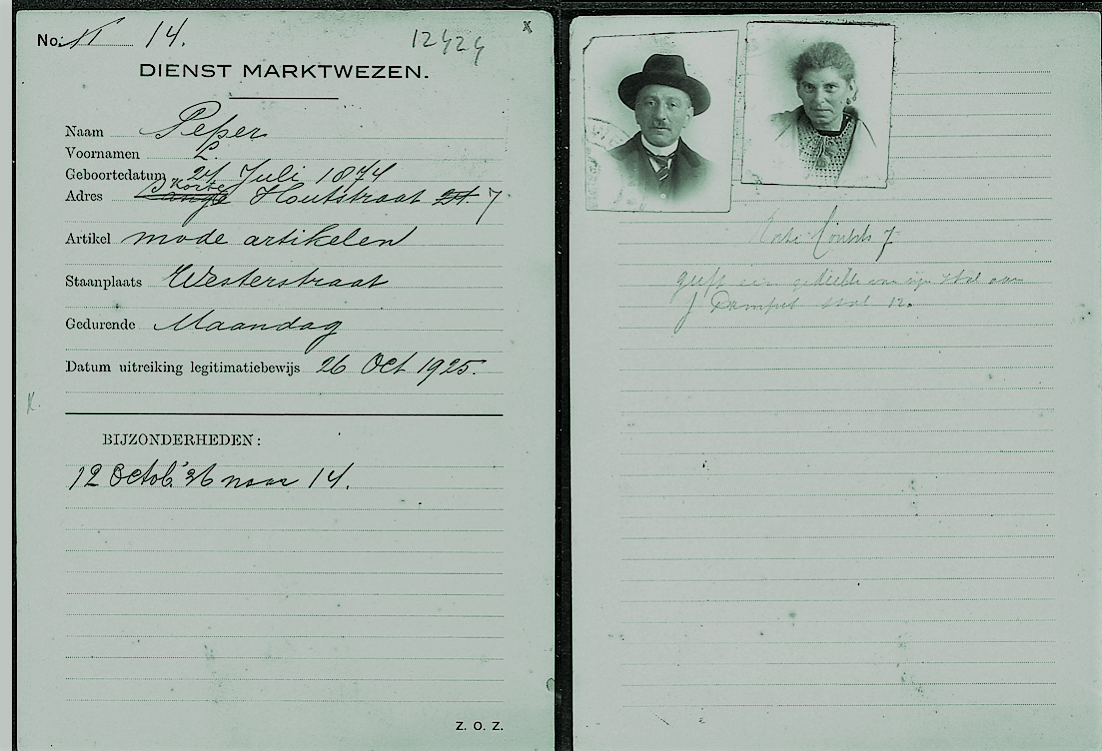 No. 14.
12424
x
DIENST MARKTWEZEN.
Naam Peper
Voornamen L.
Geboortedatum 24 Juli 1874
Korte
Adres Lange Houtstraat 21 7
Artikel mode artikelen
Staanplaats Westerstraat
Gedurende Maandag
Datum uitreiking legitimatiebewijs 26 Oct 1925.
BIJZONDERHEDEN:
12 Octob. '26 naar 14.
Z. O. Z.
Korte Houtstr 7
geeft een gedeelte van zijn stal aan
J stal 12.